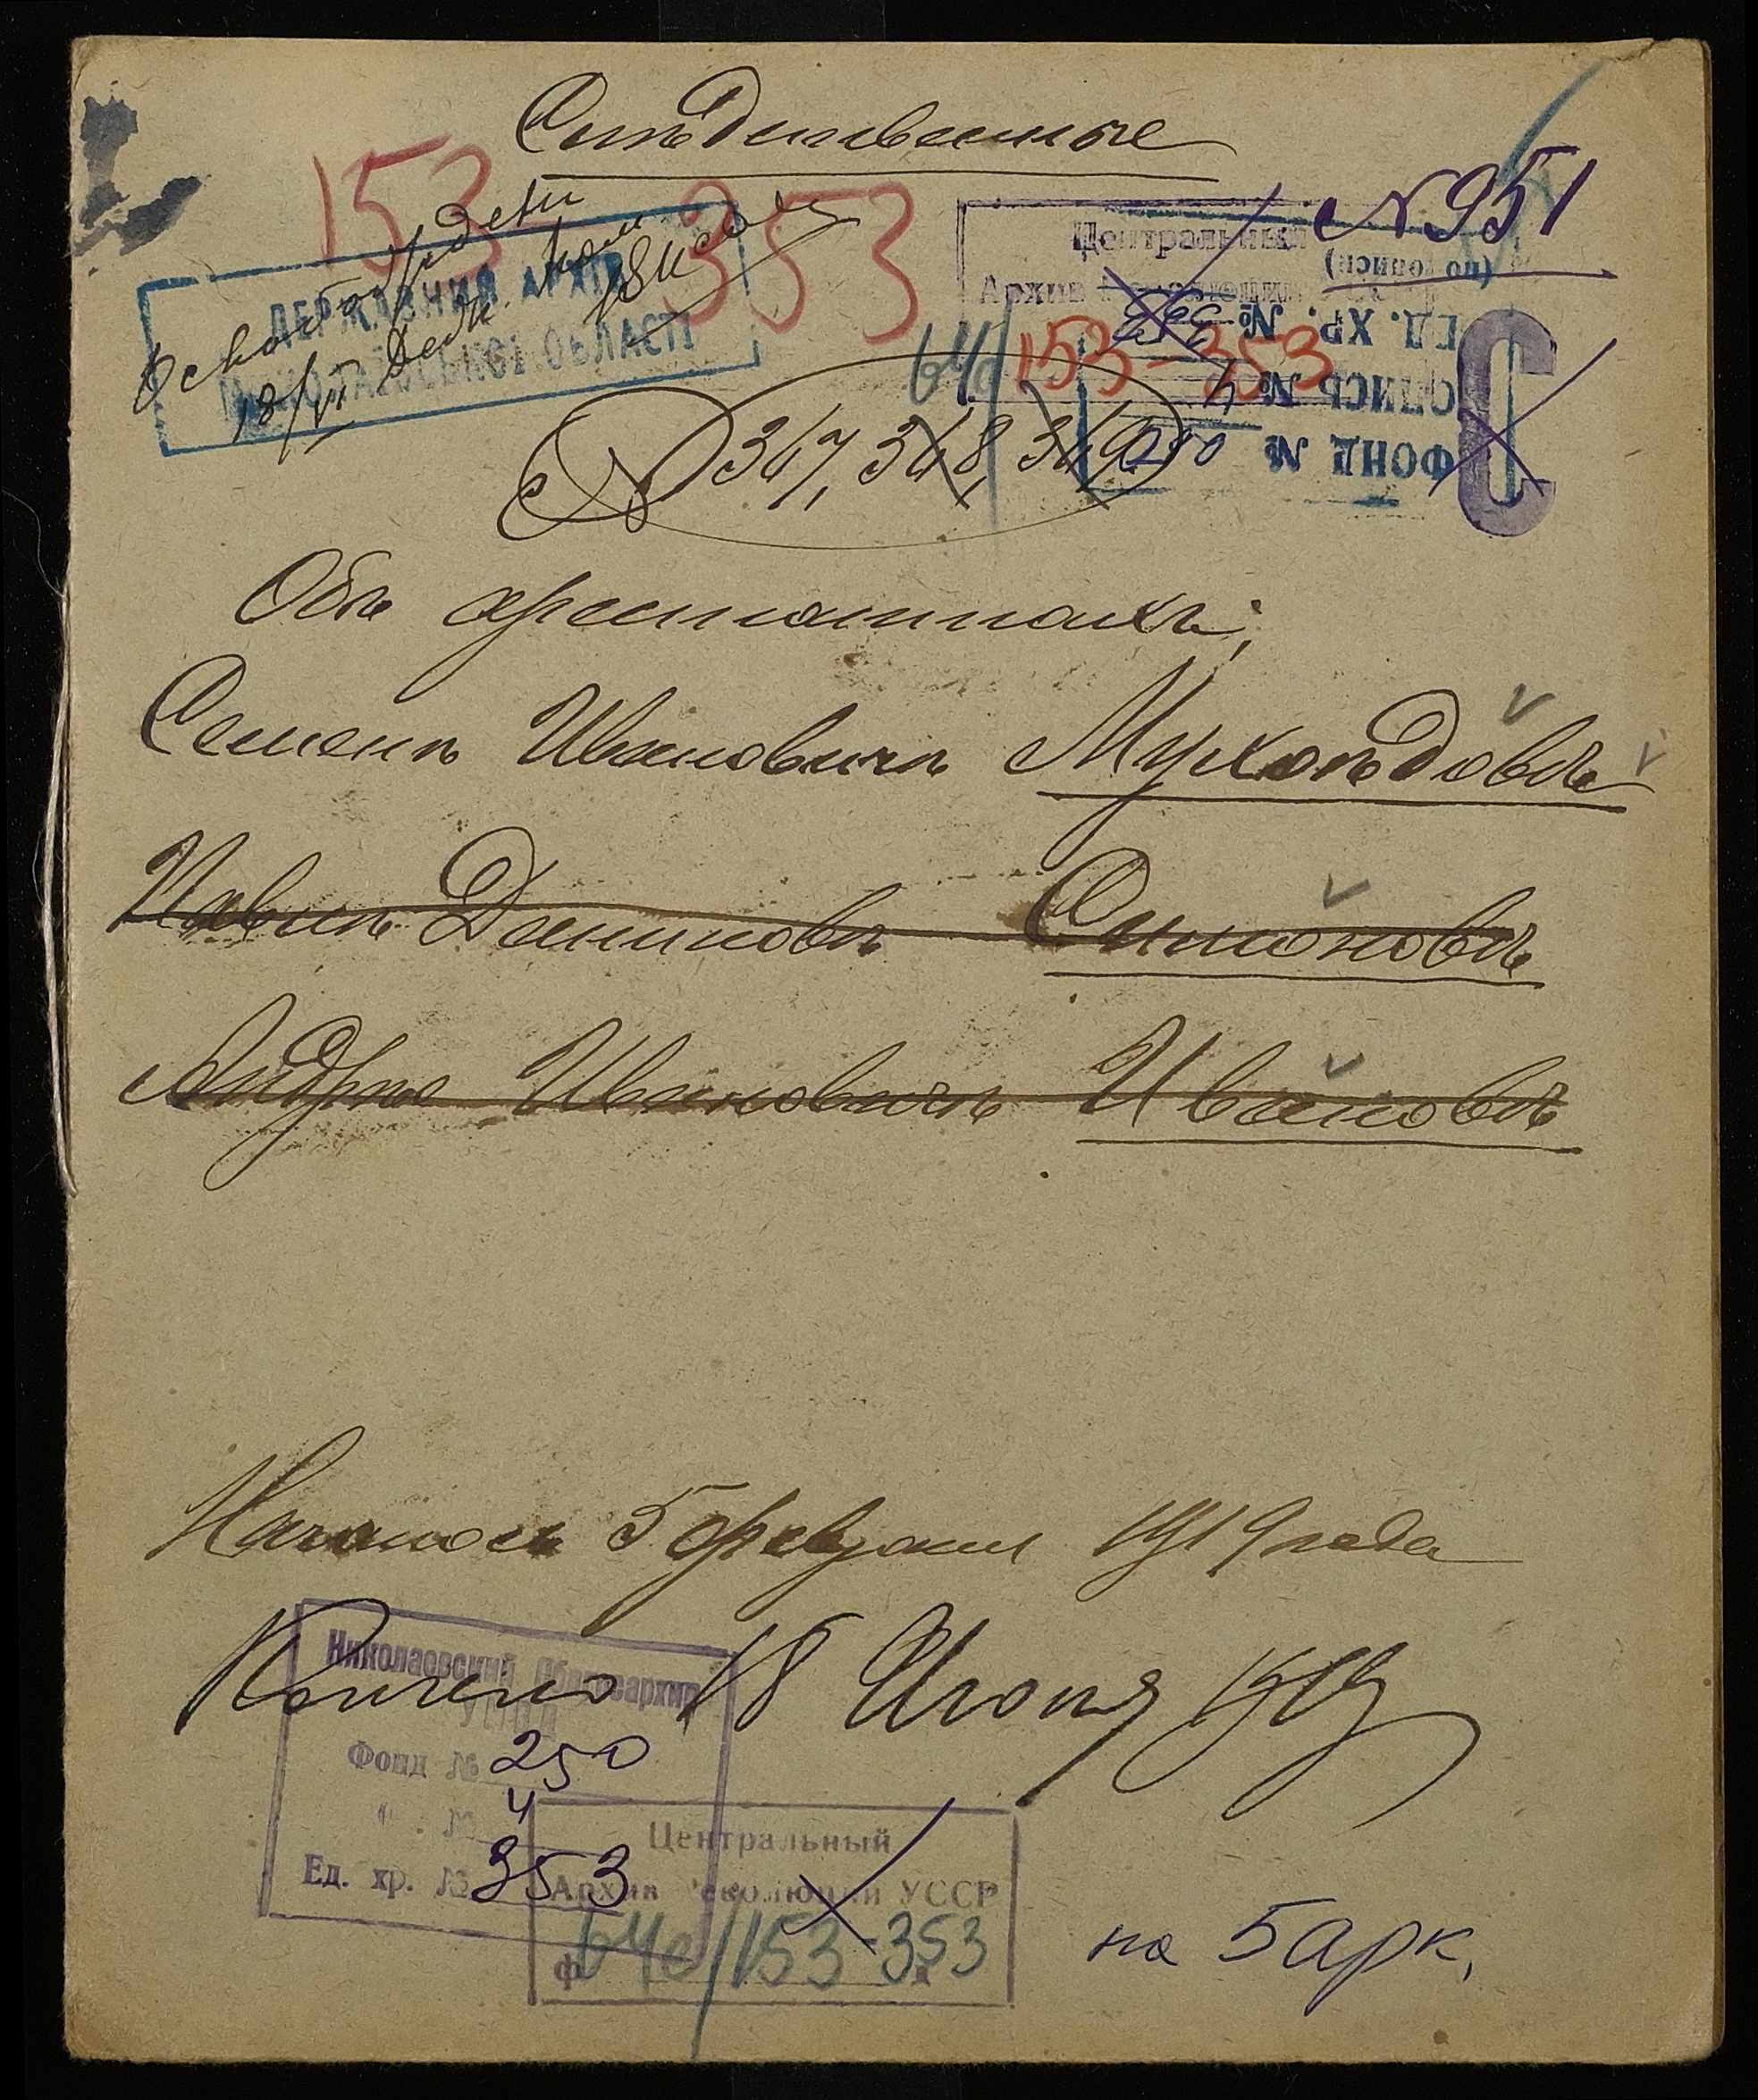 Слѣдственные
153
353
№ 951
ДЕРЖАВНИЙ АРХІВ
МИКОЛАЇВСЬКОЇ ОБЛАСТІ
18/VI
Центральный
Архив Революции
(по описи)
ЕД. ХР. № 353
ОПИСЬ № 4
ФОНД № 250
С
64с/153-353
№ 347, 348, 349
Объ арестантахъ;
Семенъ Ивановичъ Мухоѣдовъ
Павелъ Даниловъ Симоновъ
Андрей Ивановичъ Ивановъ
Началось 5 февраля 1919 года
Кончено 18 Июня 1919
Николаевский Облгосархив
УССР
Фонд № 250
" № 4
Ед. хр. № 353
Центральный
Архив Революции УССР
ф 64с/153-353
на 5 арк.